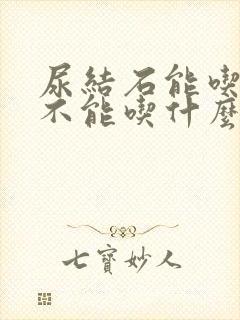 尿結石能喫
不能喫什麼
七寶妙人